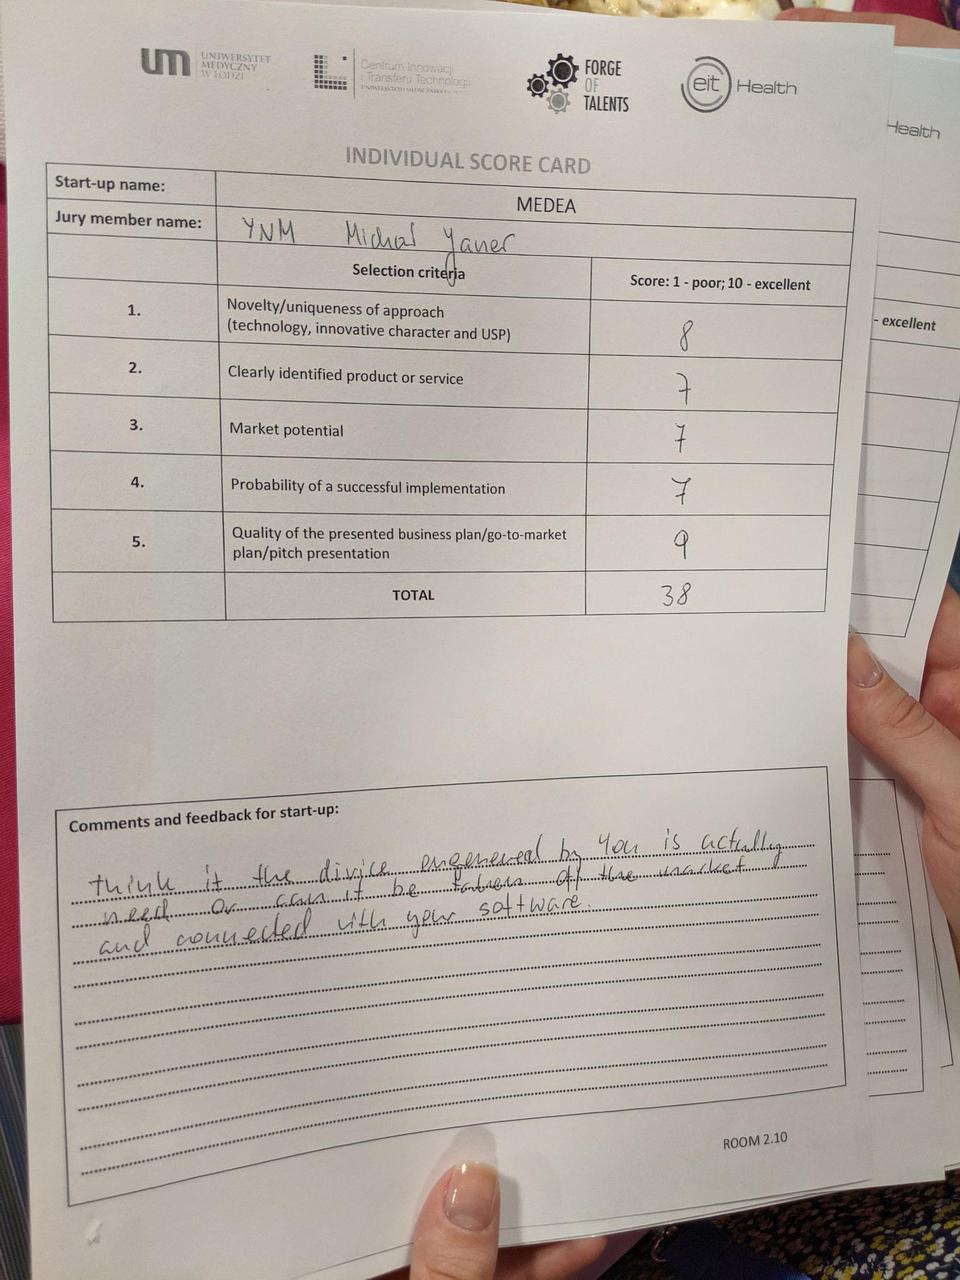 um UNIWERSYTET
MEDYCZNY
W ŁODZI
Centrum Innowacji
i Transferu Technologii
FORGE
OF
TALENTS
eit Health
Health
INDIVIDUAL SCORE CARD
Start-up name: MEDEA
Jury member name: YNM Michal Yaner
Selection criteria Score: 1 - poor; 10 - excellent
1. Novelty/uniqueness of approach
(technology, innovative character and USP) 8
- excellent
2. Clearly identified product or service 7
3. Market potential 7
4. Probability of a successful implementation 7
5. Quality of the presented business plan/go-to-market
plan/pitch presentation 9
TOTAL 38
Comments and feedback for start-up:
think if the divice engenered by You is actually
need or can it be taken off the market
and connected with your software.
ROOM 2.10